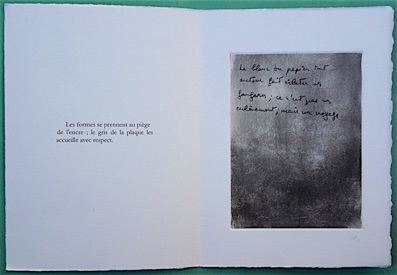 Les formes se prennent au piège
de l'encre ; le gris de la plaque les
accueille avec respect.
Le blanc du papier tout
autour fait éclater ses
fanfares ; ce n'est pas un
enlèvement, mais un voyage